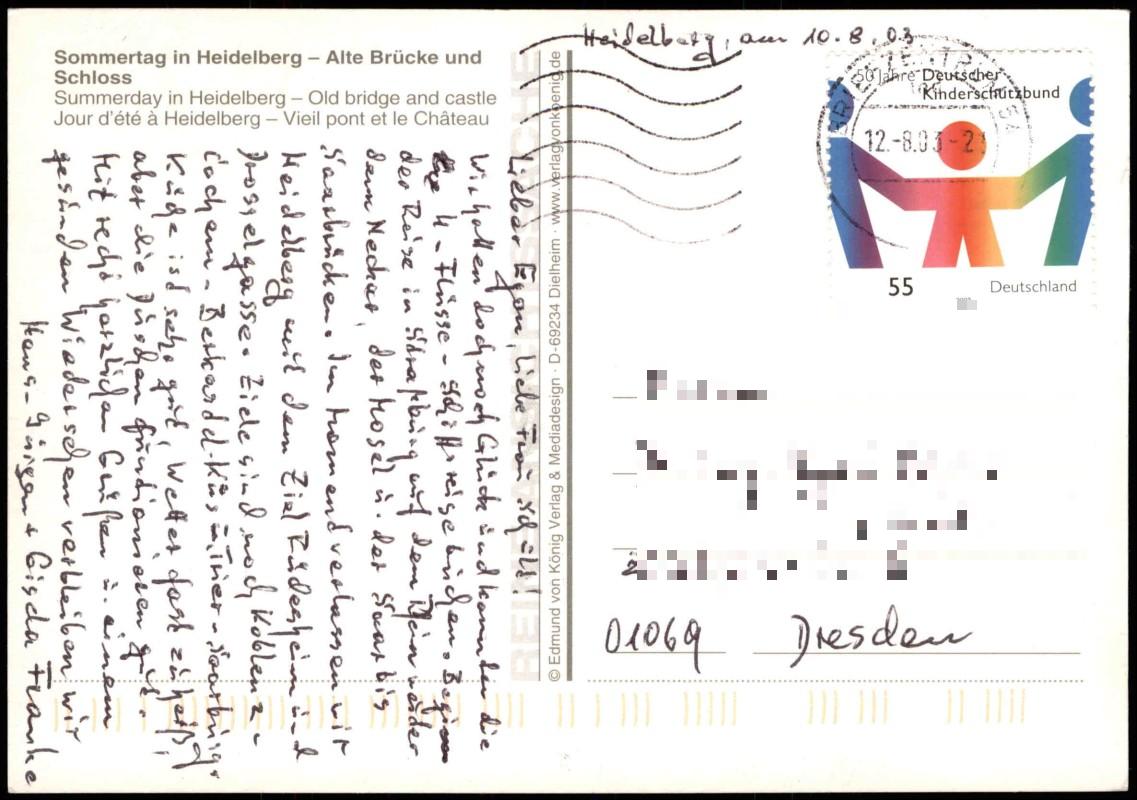 Sommertag in Heidelberg – Alte Brücke und
Schloss
Summerday in Heidelberg – Old bridge and castle
Jour d'été à Heidelberg – Vieil pont et le Château
Heidelberg, am 10.8.03
Lieber Egon, liebe
Wir hatten doch noch Glück und konnten die
4-Flüsse-Schiffsreise buchen. Beginn
der Reise in Straßburg auf dem Rhein weiter
dem Neckar, der Mosel u. der Saar bis
Saarbrücken. Im Moment verlassen wir
Heidelberg mit dem Ziel Rüdesheim und
Drosselgasse. Ziele sind noch Koblenz -
Cochem - Bernkastel-Kues - Trier - Saarbrg.
Küche ist sehr gut, Wetter fast zu heiß,
aber die Duschen funktionieren gut.
Mit recht herzlichen Grüßen u. einem
gesunden Wiedersehen verbleiben wir
Hans-Jürgen + Gisela Franke
© Edmund von König Verlag & Mediadesign · D-69234 Dielheim · www.verlagvonkoenig.de
50 Jahre Deutscher
Kinderschutzbund
12.-8.03-21
55 Deutschland
01069 Dresden